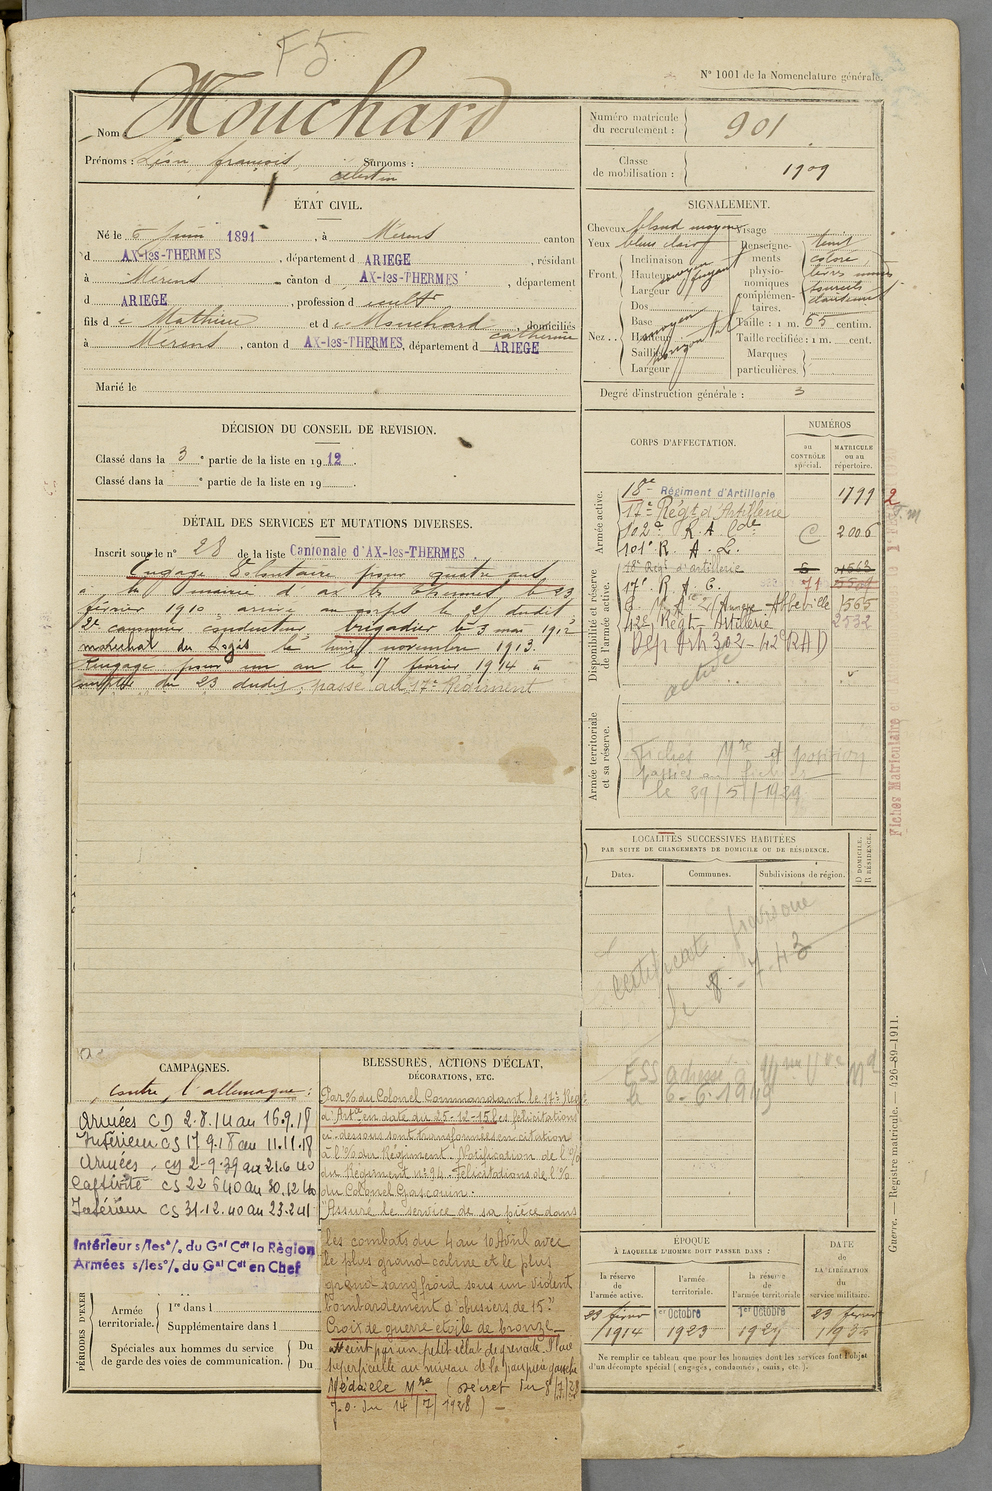 F5.
N° 1001 de la Nomenclature générale.
Nom : Mouchard
Prénoms : Léon françois Surnoms :
célestin
ÉTAT CIVIL.
Né le 6 Juin 1891, à Mérens canton
d AX-les-THERMES, département d ARIEGE, résidant
à Mérens canton d AX-les-THERMES, département
d ARIEGE, profession d cultr
fils d e Mathieu et d e Mouchard catherine, domiciliés
à Mérens, canton d AX-les-THERMES, département d ARIEGE
Marié le
DÉCISION DU CONSEIL DE REVISION.
Classé dans la 3e partie de la liste en 1912.
Classé dans la e partie de la liste en 19
DÉTAIL DES SERVICES ET MUTATIONS DIVERSES.
Inscrit sous le n° 28 de la liste Cantonale d'AX-les-THERMES
Engagé Volontaire pour quatre ans
à la mairie d'ax les Thermes, le 23
février 1910 arrivé au corps le 25 dudit
2e canonnier conducteur brigadier le 3 mai 1912
maréchal des Logis le novembre 1913.
Rengagé pour un an le 17 février 1914 à
compter du 23 dudit, passé au 17e Régiment
CAMPAGNES.
contre l'allemagne :
Armées CD 2.8.14 au 16.9.18
Intérieur CS 17.9.18 au 11.11.18
Armées 2-9-39 au 21.6.40
Captivité CS 22.6.40 au 30.12.40
Intérieur CS 31-12.40 au 23.2.41
Intérieur s/les °/. du Gal Cdt la Région
Armées s/les °/. du Gal Cdt en Chef
PÉRIODES D'EXER
Armée territoriale.
1re dans l
Supplémentaire dans l
Spéciales aux hommes du service de garde des voies de communication.
Du
Du
BLESSURES, ACTIONS D'ÉCLAT,
DÉCORATIONS, ETC.
Par % du Colonel Commandant le 17e Régt
d'Artie en date du 25-12-15 les félicitations
ci-dessous sont transformées en citation
à l'% du Régiment. Notification de l'%
du Régiment n° 94. Félicitations de l'%
du Colonel Gascouin.
"Assure le service de sa pièce dans
les combats du 4 au 10 Avril avec
le plus grand calme et le plus
grand sang froid sous un violent
bombardement d'obusiers de 15"
Croix de guerre etoile de bronze
Atteint par un petit éclat de grenade. Plaie
superficielle au niveau de la paupière gauche
Médaille Mre (Décret du 8/7/28
J.O. du 14/7/1928) —
Numéro matricule du recrutement : 901
Classe de mobilisation : 1909
SIGNALEMENT.
Cheveux blond moyen Visage
Yeux bleus clairs
Front.
Inclinaison moyen
Hauteur moyen
Largeur
Nez..
Dos
Base moyen
Hauteur
Saillie
Largeur
Renseignements physionomiques complémentaires.
teint
coloré
lèvres
Taille : 1 m. 65 centim.
Taille rectifiée : 1 m. cent.
Marques particulières.
Degré d'instruction générale : 3
CORPS D'AFFECTATION.
NUMÉROS
au CONTRÔLE spécial.
MATRICULE ou au répertoire.
Armée active.
18e Régiment d'Artillerie 1799
17e Régt d'Artillerie
102e R.A. Lde C 2006
101e R.A.L.
Disponibilité et réserve de l'armée active.
18e Régt d'artillerie 6 1563
17e R.A.C. 71
Annexe Abbeville 1565
42e Régt Artillerie 2532
Dep Art 302-42e RAD
active
Armée territoriale et sa réserve.
Fiches Mre et position
passées au fichier
le 29/5/1929
Fiches Matriculaire e
LOCALITÉS SUCCESSIVES HABITÉES
PAR SUITE DE CHANGEMENTS DE DOMICILE OU DE RÉSIDENCE.
Dates. Communes. Subdivisions de région.
D DOMICILE. R RÉSIDENCE.
certificat
le 8-7-43
ESS
le 6-6-1949
ÉPOQUE
À LAQUELLE L'HOMME DOIT PASSER DANS :
la réserve de l'armée active.
l'armée territoriale.
la réserve de l'armée territoriale
DATE de LA LIBÉRATION du service militaire.
23 février 1914
1er Octobre 1923
1er Octobre 1929
23 février 1935
Ne remplir ce tableau que pour les hommes dont les services font l'objet
d'un décompte spécial (engagés, condamnés, omis, etc.).
Guerre. — Registre matricule. — 426-89-1911.